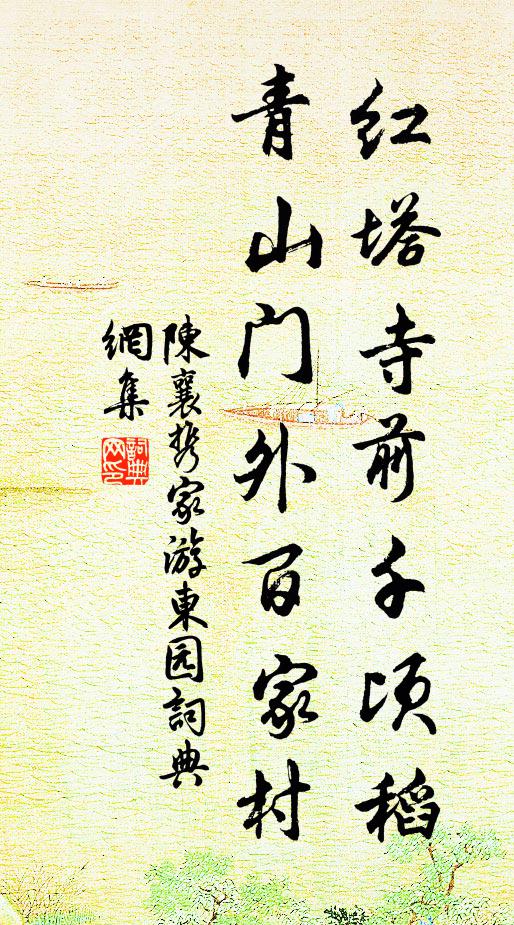 红塔寺前千顷稻
青山门外百家村
陳襄携家游東园詞典
網集
詞典
网印